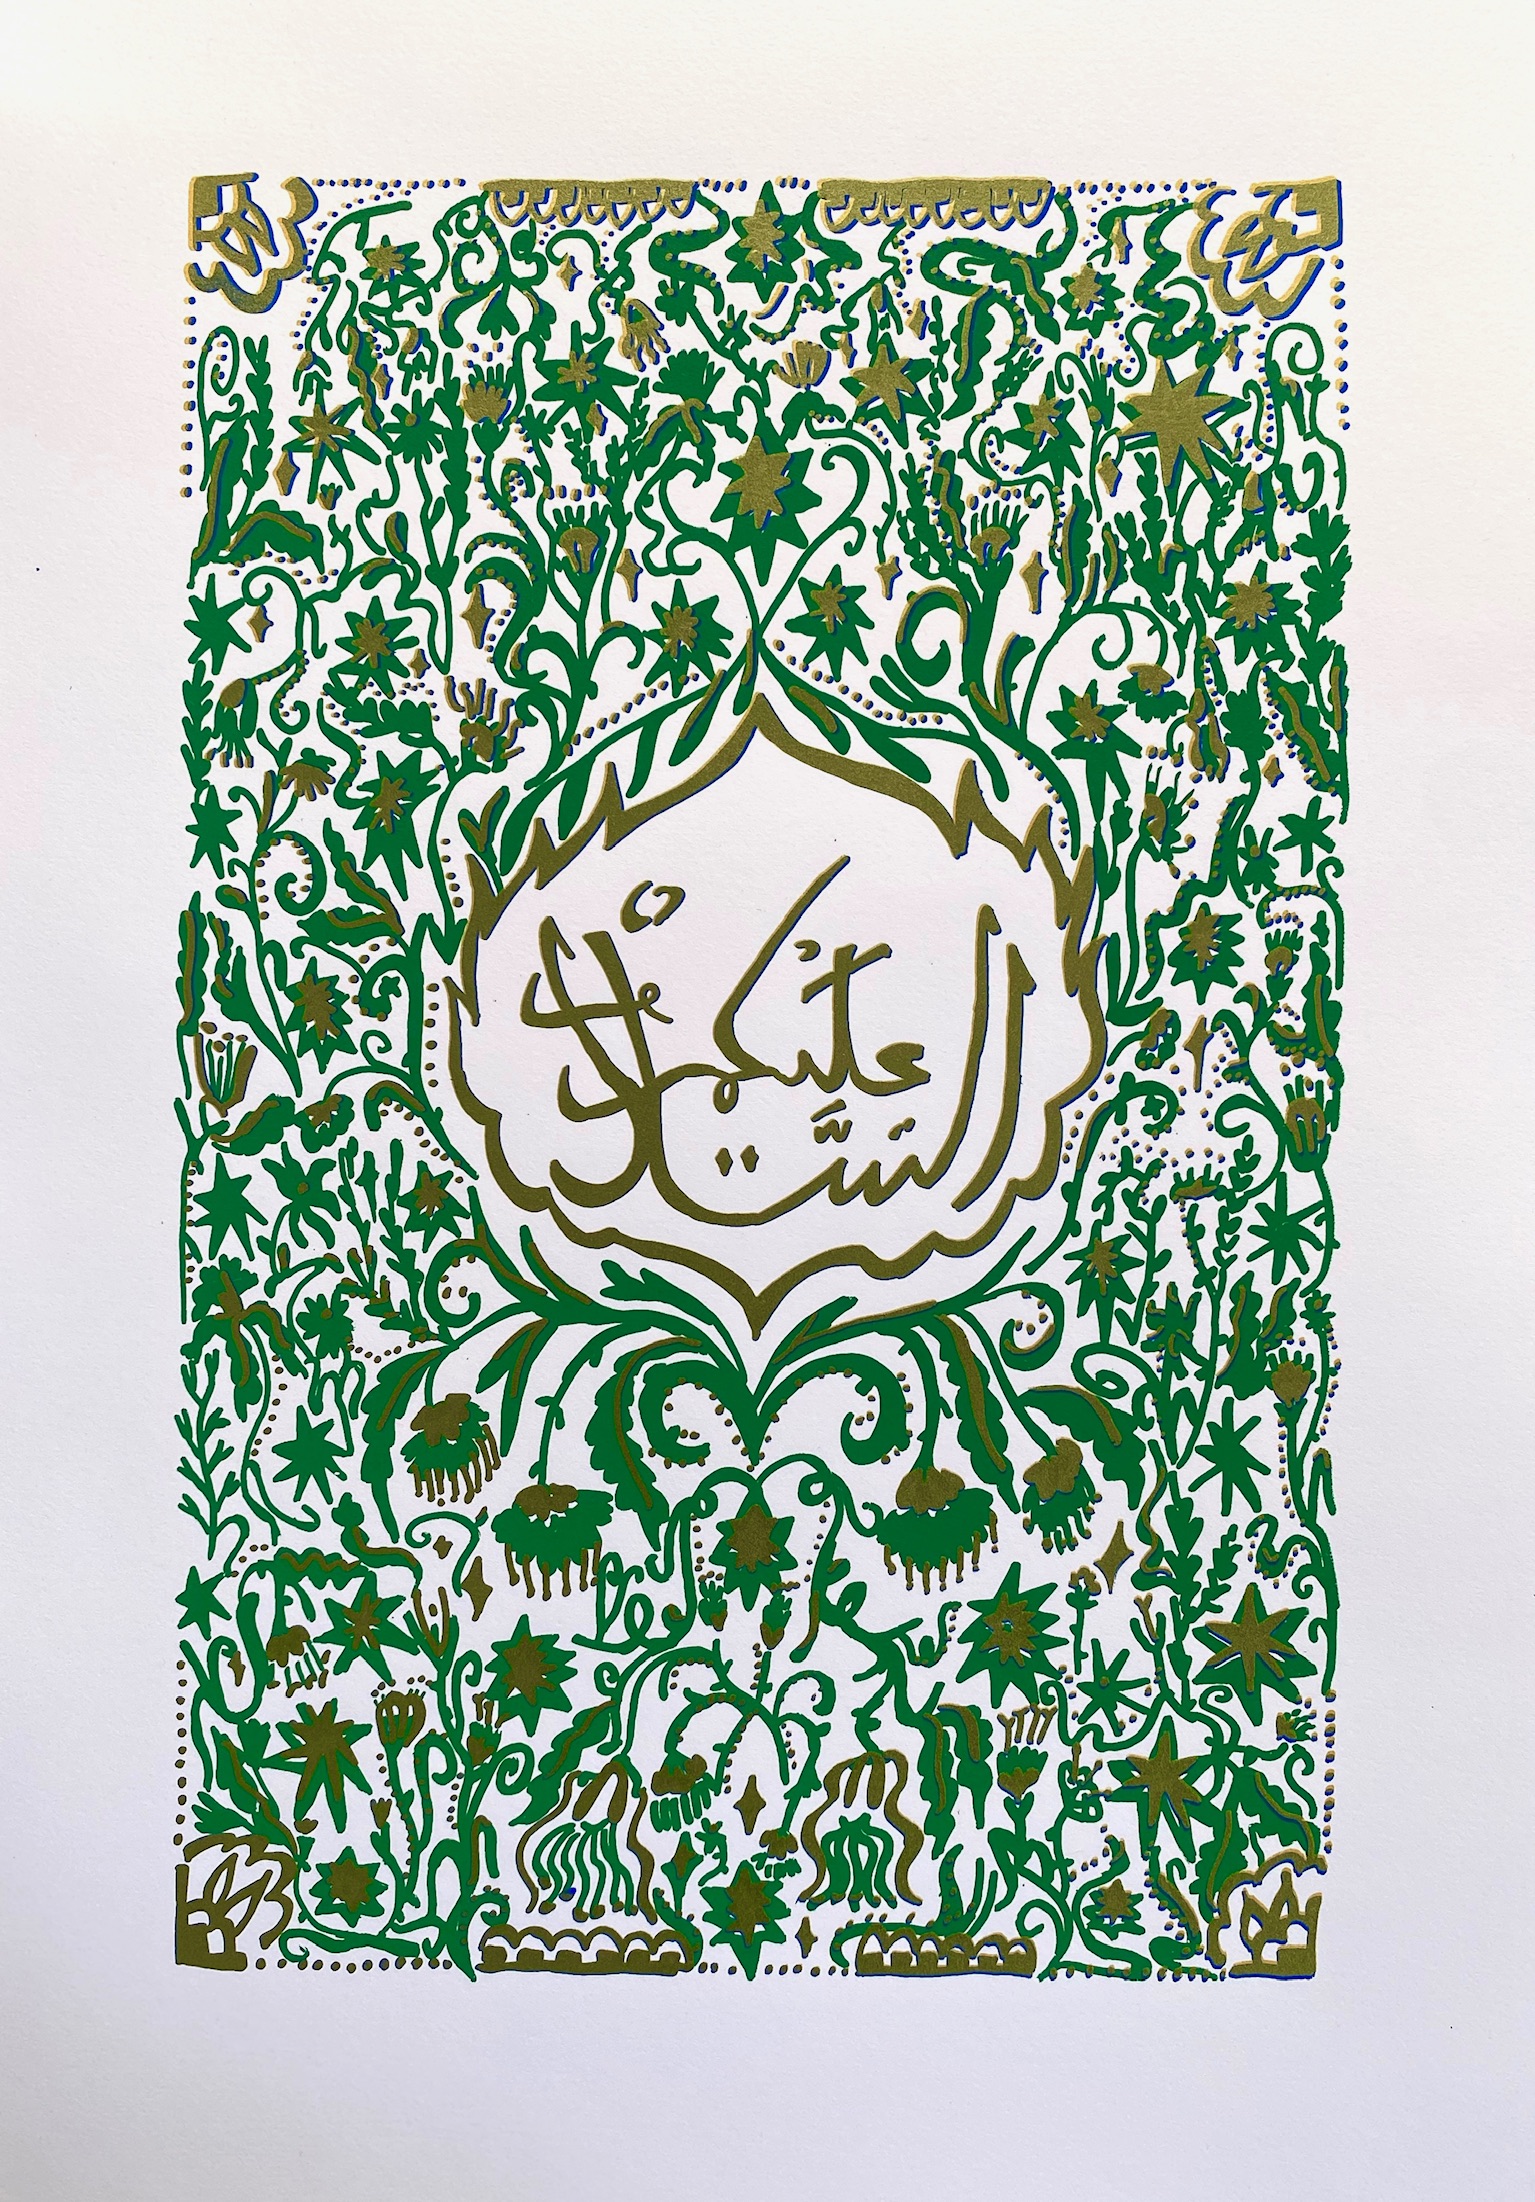 السَّلام عليكم